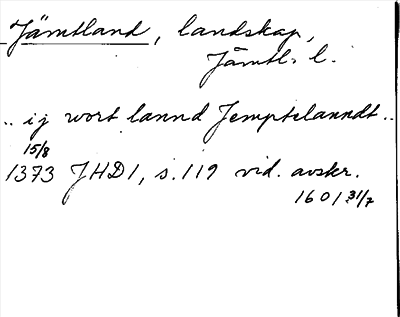 Jämtland, landskap,
Jämtl. l.
.. ij wort lannd Jemptelanndt ..
15/8
1373 JHD1, s. 119 vid. avskr.
1601 31/7